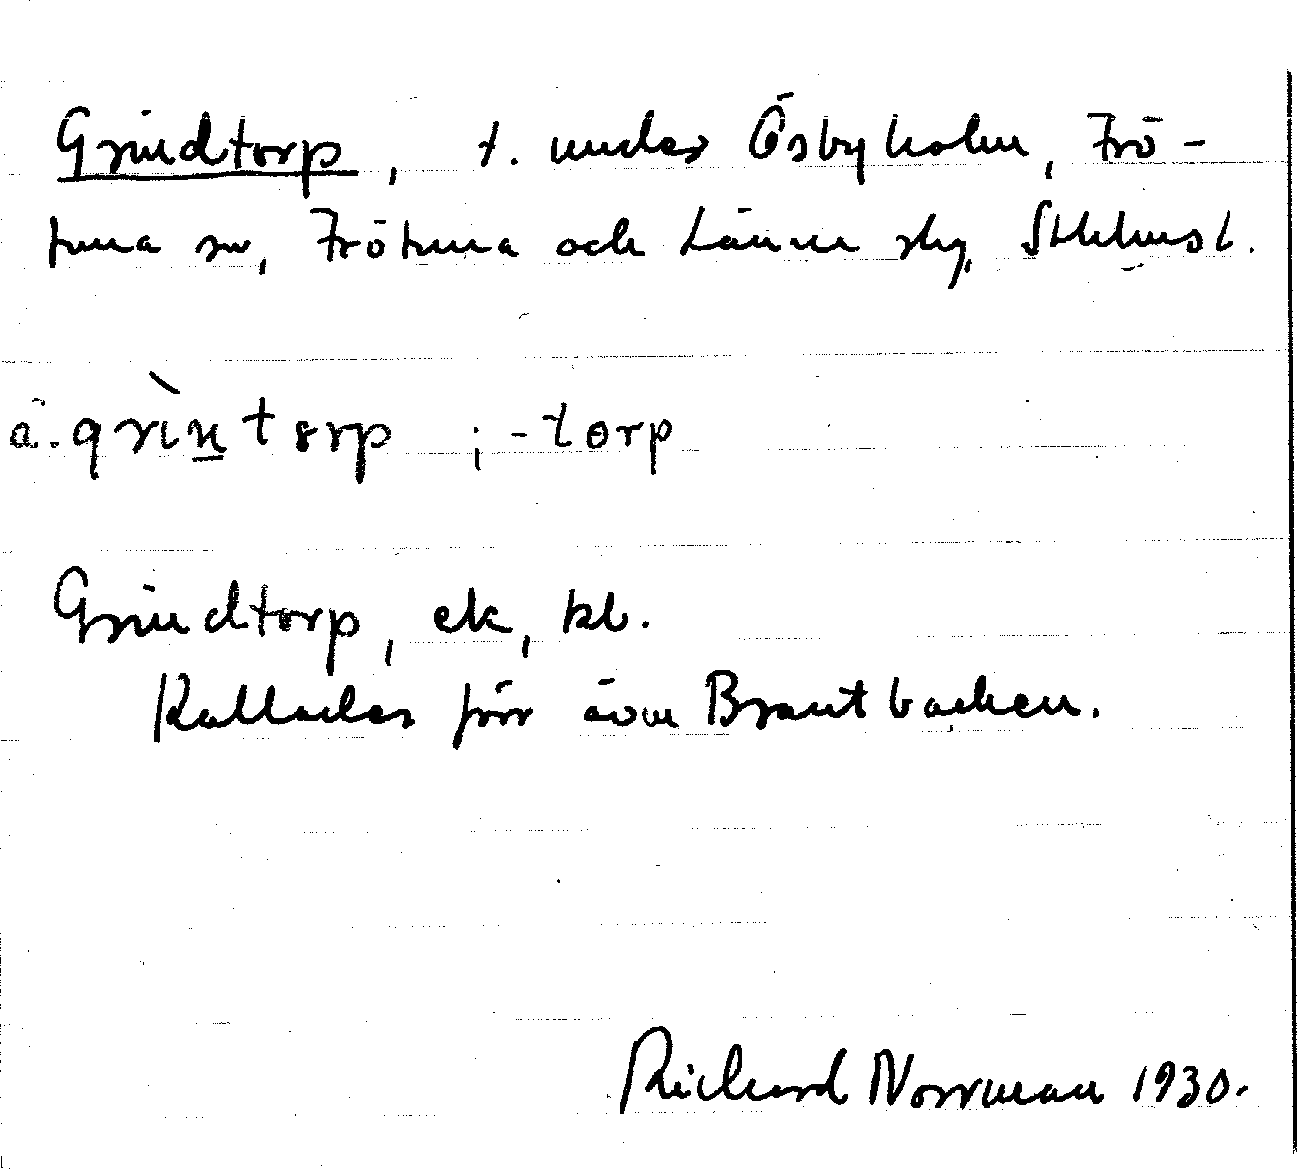 Grindtorp, t. under Ösbyholm, Frö-
tuna sn, Frötuna och Länna skg, Sthlmsl.
å. grìntorp ; -torp
Grindtorp, ek, kb.
Kallades förr även Brantbacken.
Richard Norrman 1930.